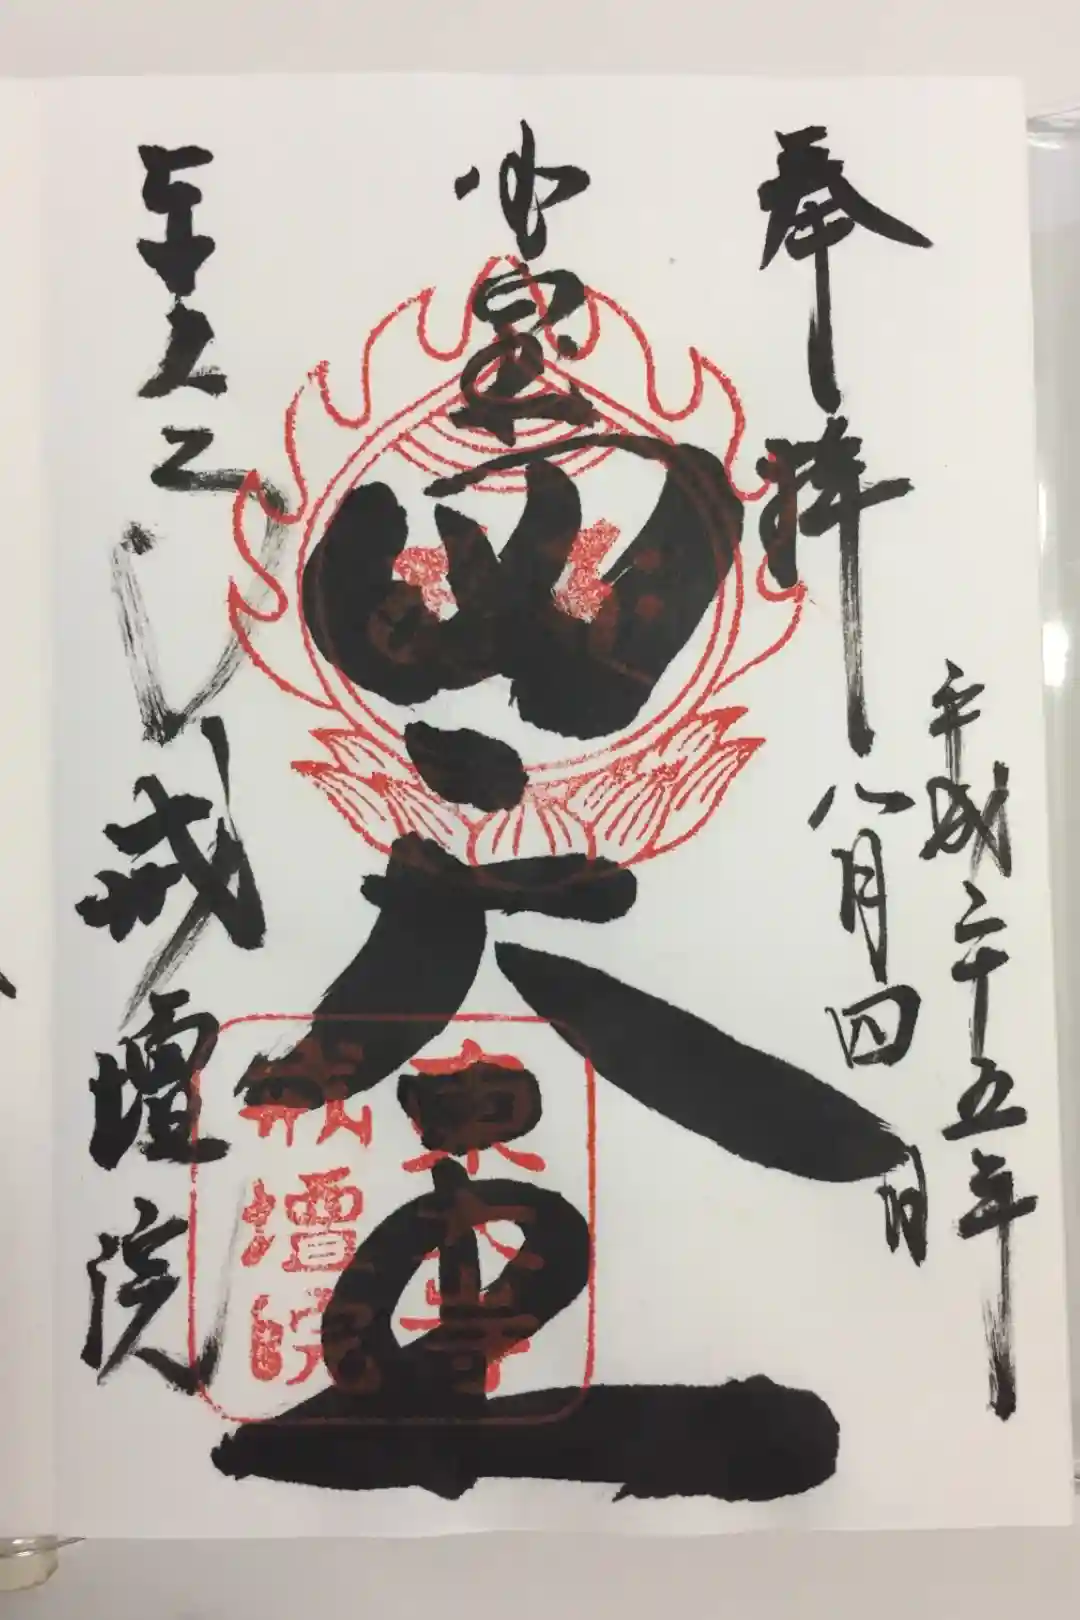 奉拝
平成二十五年
八月四日
四天王
東大寺
戒壇院
東大寺
戒壇院